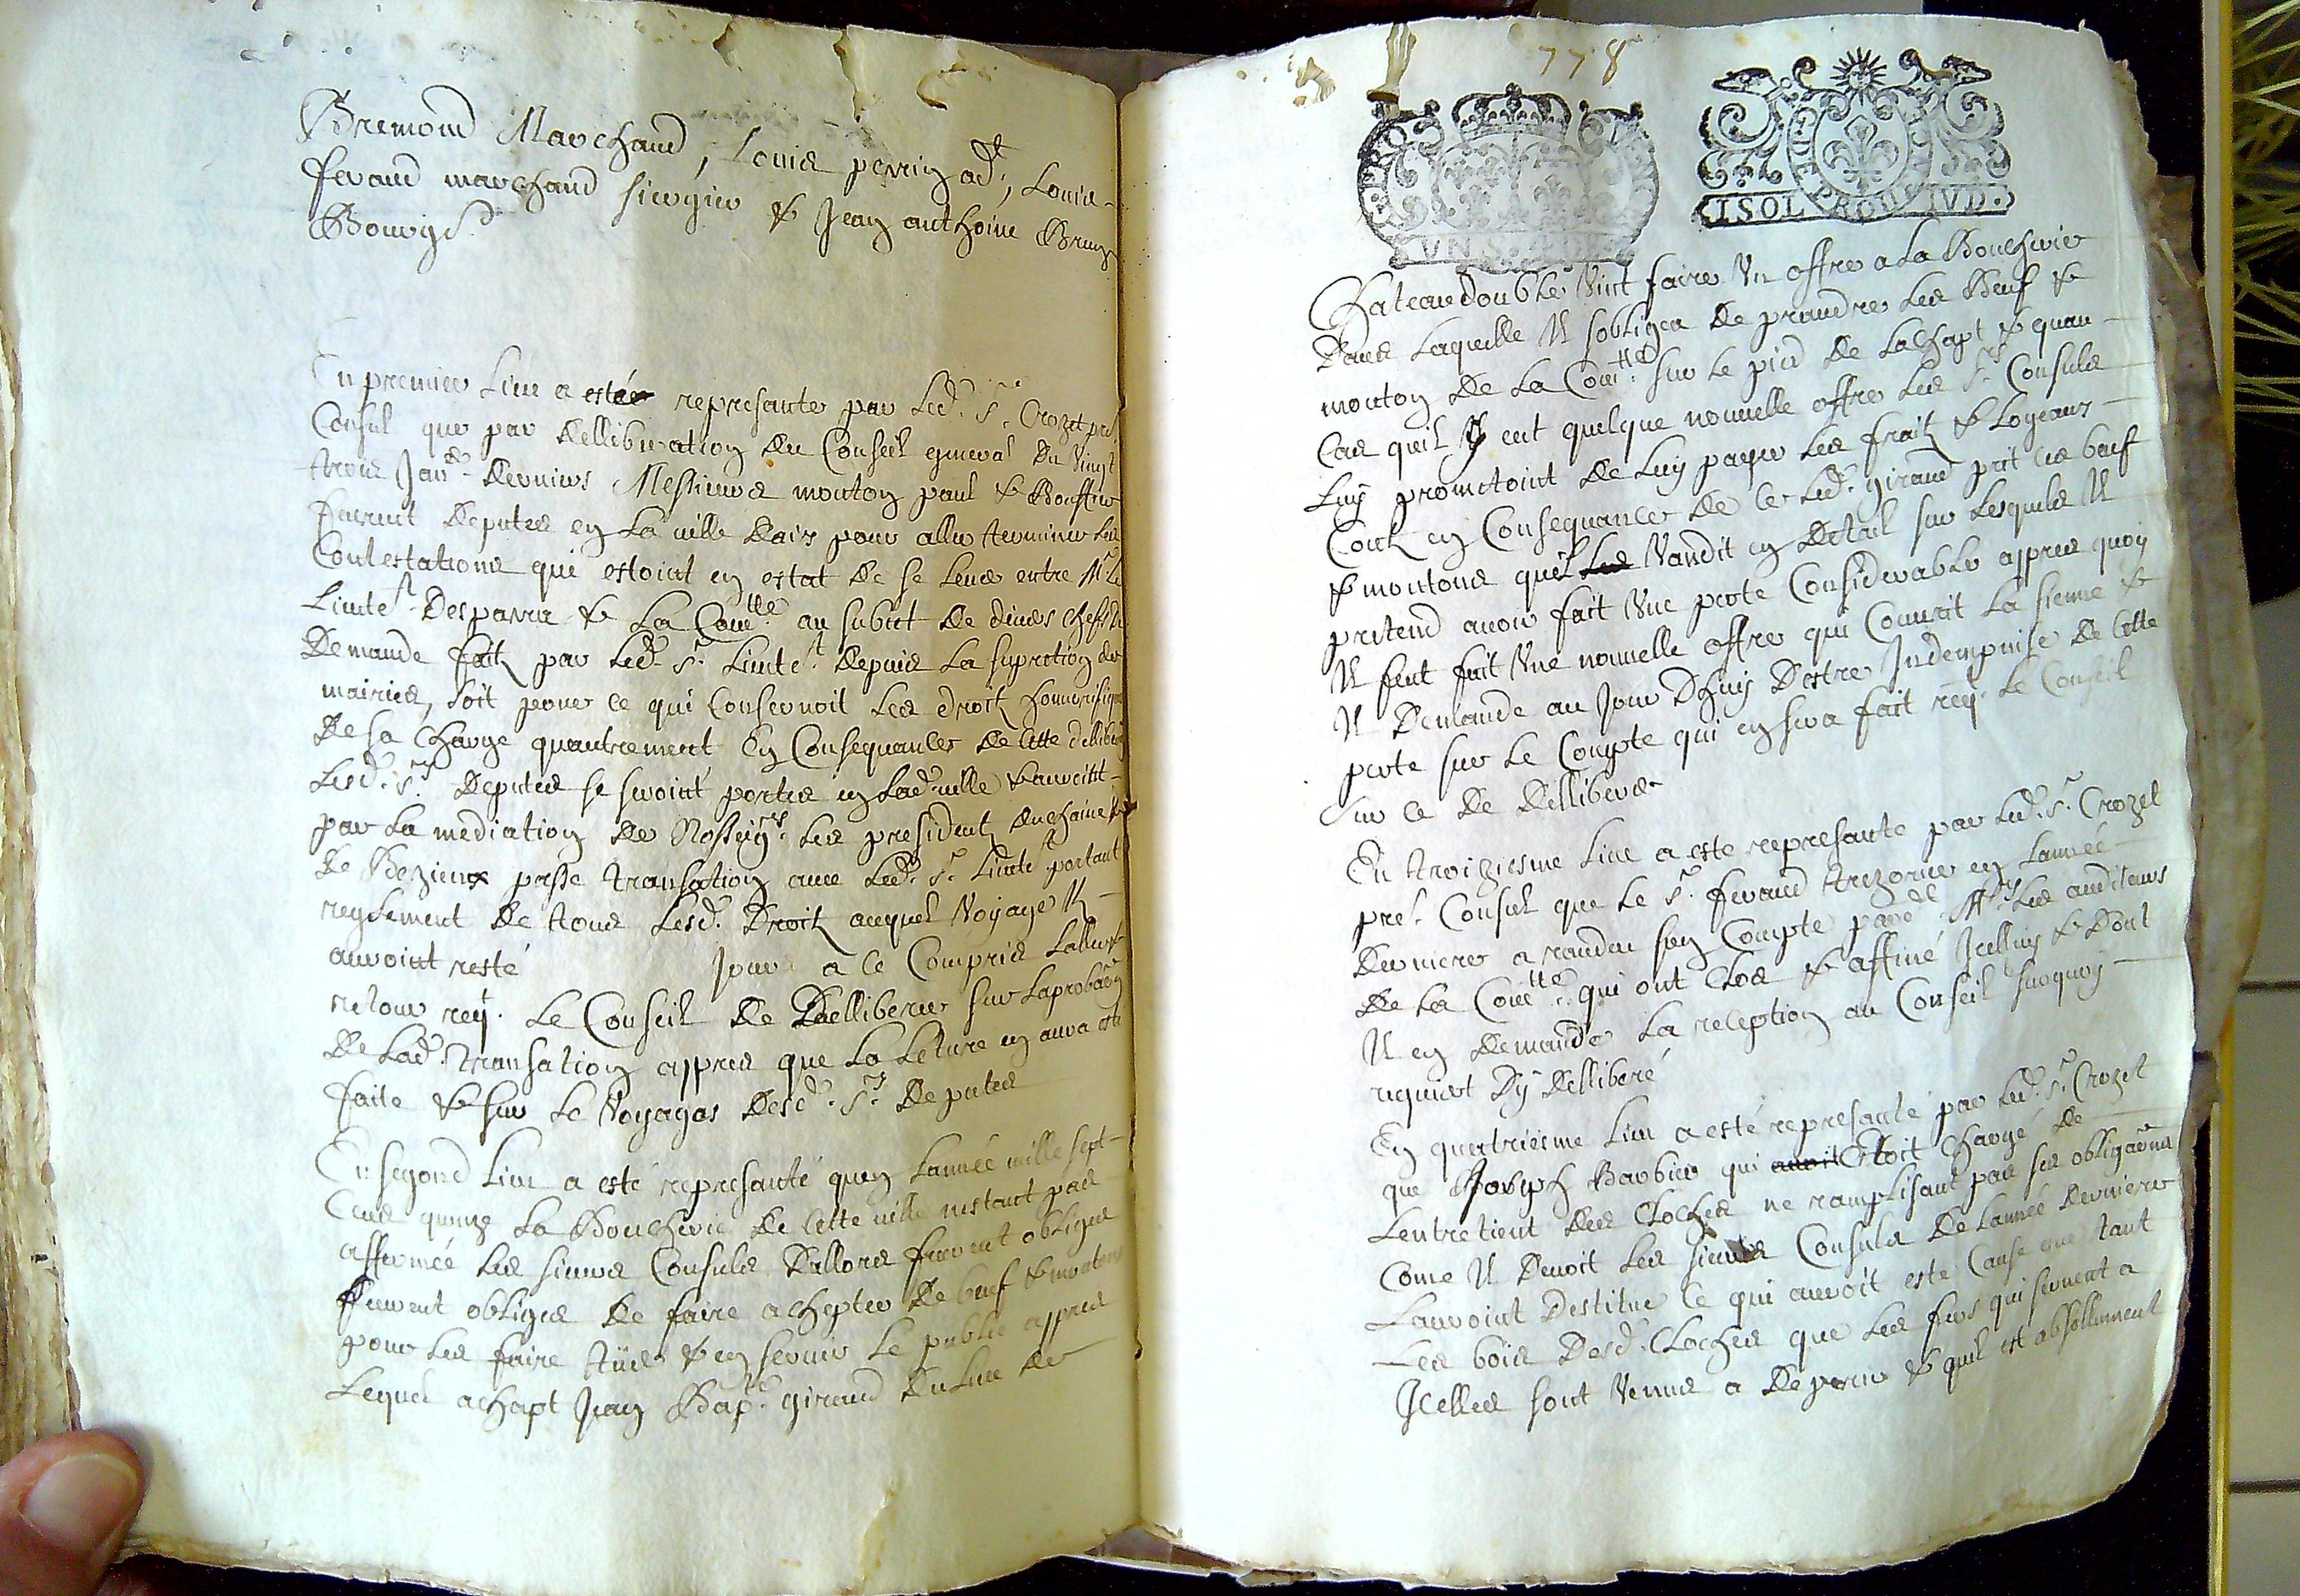 Bremond Marchand, Louis perrin adt, Louis
feraud marchand sirurgien & Jean anthoine Brun
Bourgs.
En premier lieu a esté represanté par led. sr. Crozet pr.
Consul que par delliberation du Conseil general du vingt
trois Janr. dernier Messieurs mouton paul &
furent deputes en la ville daix pour aller terminer les
Contestations qui estoint en estat de se lever entre Mr. le
Lieutet. Desparra & la Comtté. au subiet de divers chefs de
demande fait par led. sr. Lieutet. depuis la supretion des
mairies, soit pour ce qui Consernoit les droit honnorifiques
de sa charge quautrement En Consequances de cette dellibon
Lesd. srs. deputes se seroint portes en lad. ville & auroint
par la mediation de Nosseigrs. les president duchaine &
de Bezieux passé transation avec led. sr. Lieutet. portant
reglement de tous lesd. Droit auquel voyage ils
auroint resté jour a ce Compris laller &
retour reqt. Le Conseil de Delliberer sur laprobaon
de lad. transation appres que la leture en aura esté
faite & sur le voyages desd. srs. deputes
En segond lieu a esté represanté quen lannée mille sept
Cens quinze la Boucherie de cette ville nestant pas
affermée les sieurs Consuls dallors furent obliges
furent obliges de faire achepter de beuf & moutons
pour les faire tüer & en servir le public appres
Lequel achapt Jean Bapte. giraud du lieu de
778
ISOL PROD IVD
VN S. 4 DE
Chateaudouble vint faire un offre a la Boucherie
dans laquelle il sobligea de prandre les Beuf &
mouton de la Comtté. sur le pied de lachapt & quan
Cas quil y eut quelque nouvelle offre les srs. Consuls
Luy prometoint de luy payer les fraix & Logeans
Cout en Consequances de ce led. giraud prit les beuf
& moutons quil les vandit en detail sur lesquels il
pretend avoir fait une perte Considerable appres quoy
il feut fait une nouvelle offre qui Couvrit la sienne &
il demande au jour dhuy destre Indempnise de cette
perte sur le Compte qui en sera fait reqt. le Conseil
sur ce de delliberer
En troiziesme lieu a este represanté par led. sr. Crozet
pr. Consul que le sr. feraud trezorier en lannée
derniere a randeu son Compte pard. Mrs. les auditeurs
de la Comtté. qui ont clos & affiné Icelluy & dont
il en demande la reception au Conseil surquoy
requiert dy delliberé
En quatriesme lieu a esté represanté par led. sr. Crozet
que Joseph Barbier qui avoit Estoit chargé de
Lentretient des cloches ne ramplisant pas ses obligaons
Come il devoit les sieurs Consuls de lannée derniere
Lauroint destitue ce qui auroit este Cause que tant
Les bois desd. cloches que les fers qui servent a
Icelles sont venus a deperir & quil est absollument